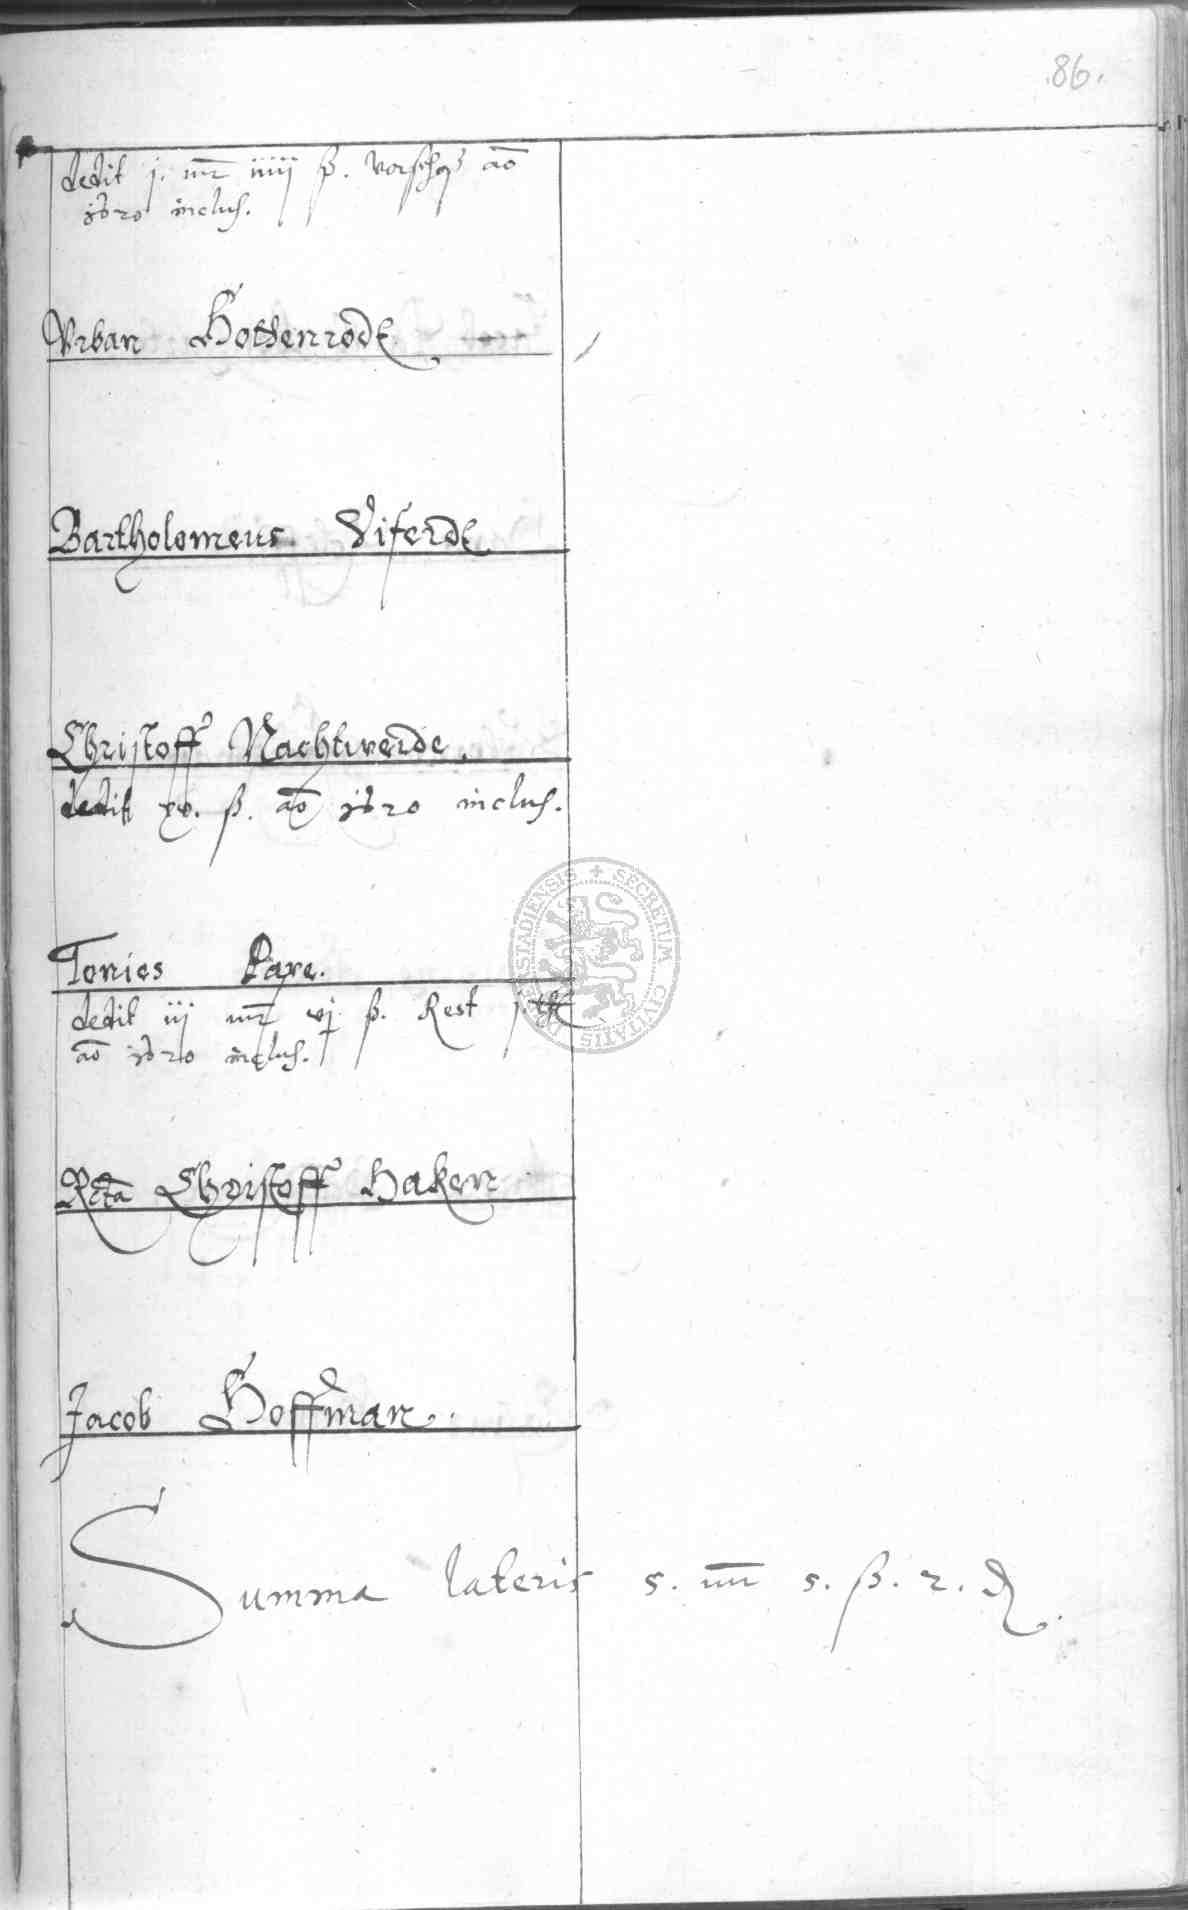 86.
dedit j. mr iiiij ß. vorschoß ao
1620 inclus.
Vrban Hottenrodt
Bartholomeus Viferdt
Christoff Nachtweide.
dedit xv. ß. ao 1620 inclus.
Tonies Pape.
dedit iij mr vj ß. Rest j.
ao 1620 inclus.
Rcta Christoff Haken
Jacob Hoffman.
Summa lateris 5. mr 5. ß. 2. d.
SECRETUM CIVITATIS